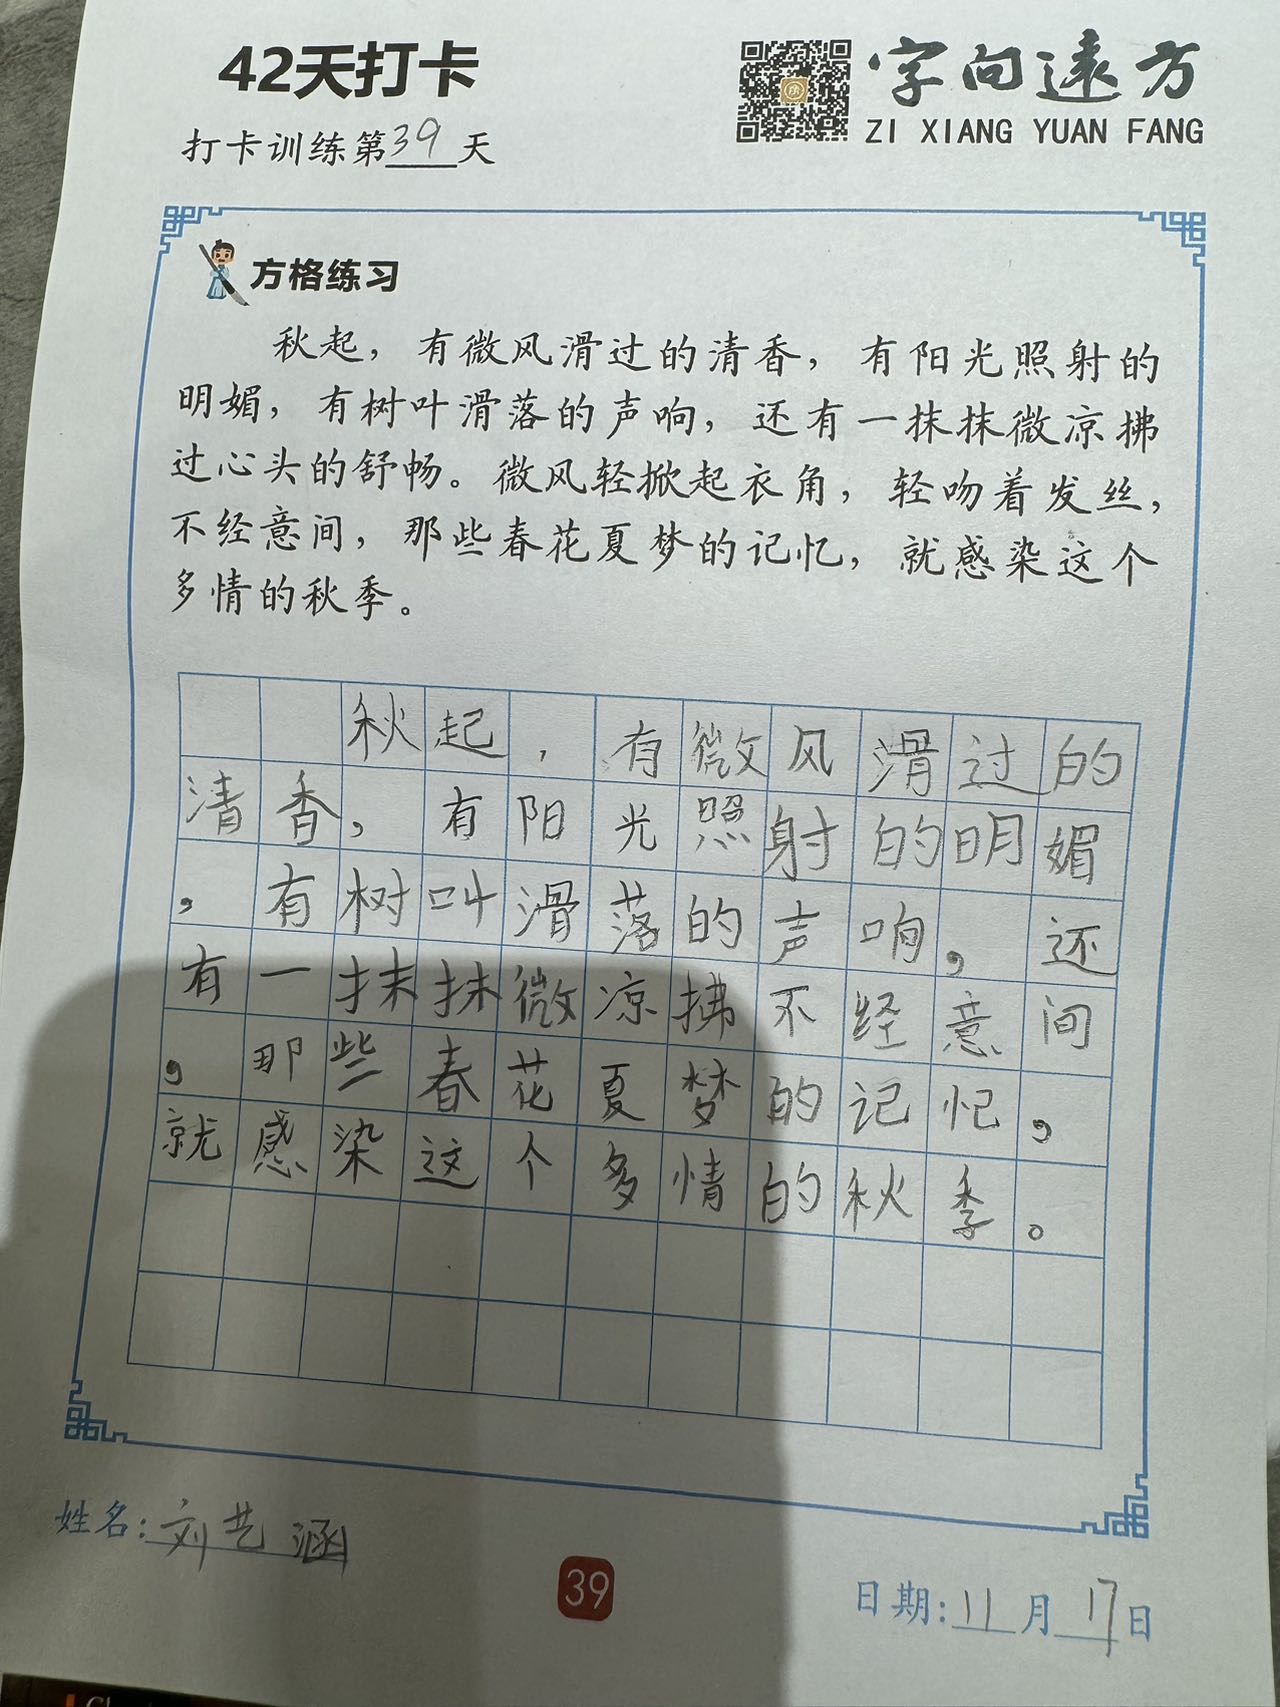 42天打卡
字向远方
ZI XIANG YUAN FANG
打卡训练第39天
方格练习
秋起，有微风滑过的清香，有阳光照射的
明媚，有树叶滑落的声响，还有一抹抹微凉拂
过心头的舒畅。微风轻掀起衣角，轻吻着发丝，
不经意间，那些春花夏梦的记忆，就感染这个
多情的秋季。
秋起，有微风滑过的
清香，有阳光照射的明媚
，有树叫滑落的声响，还
有一抹抹微凉拂不经意间
，那些春花夏梦的记忆，
就感染这个多情的秋季。
姓名：刘艺涵
39
日期：11月17日